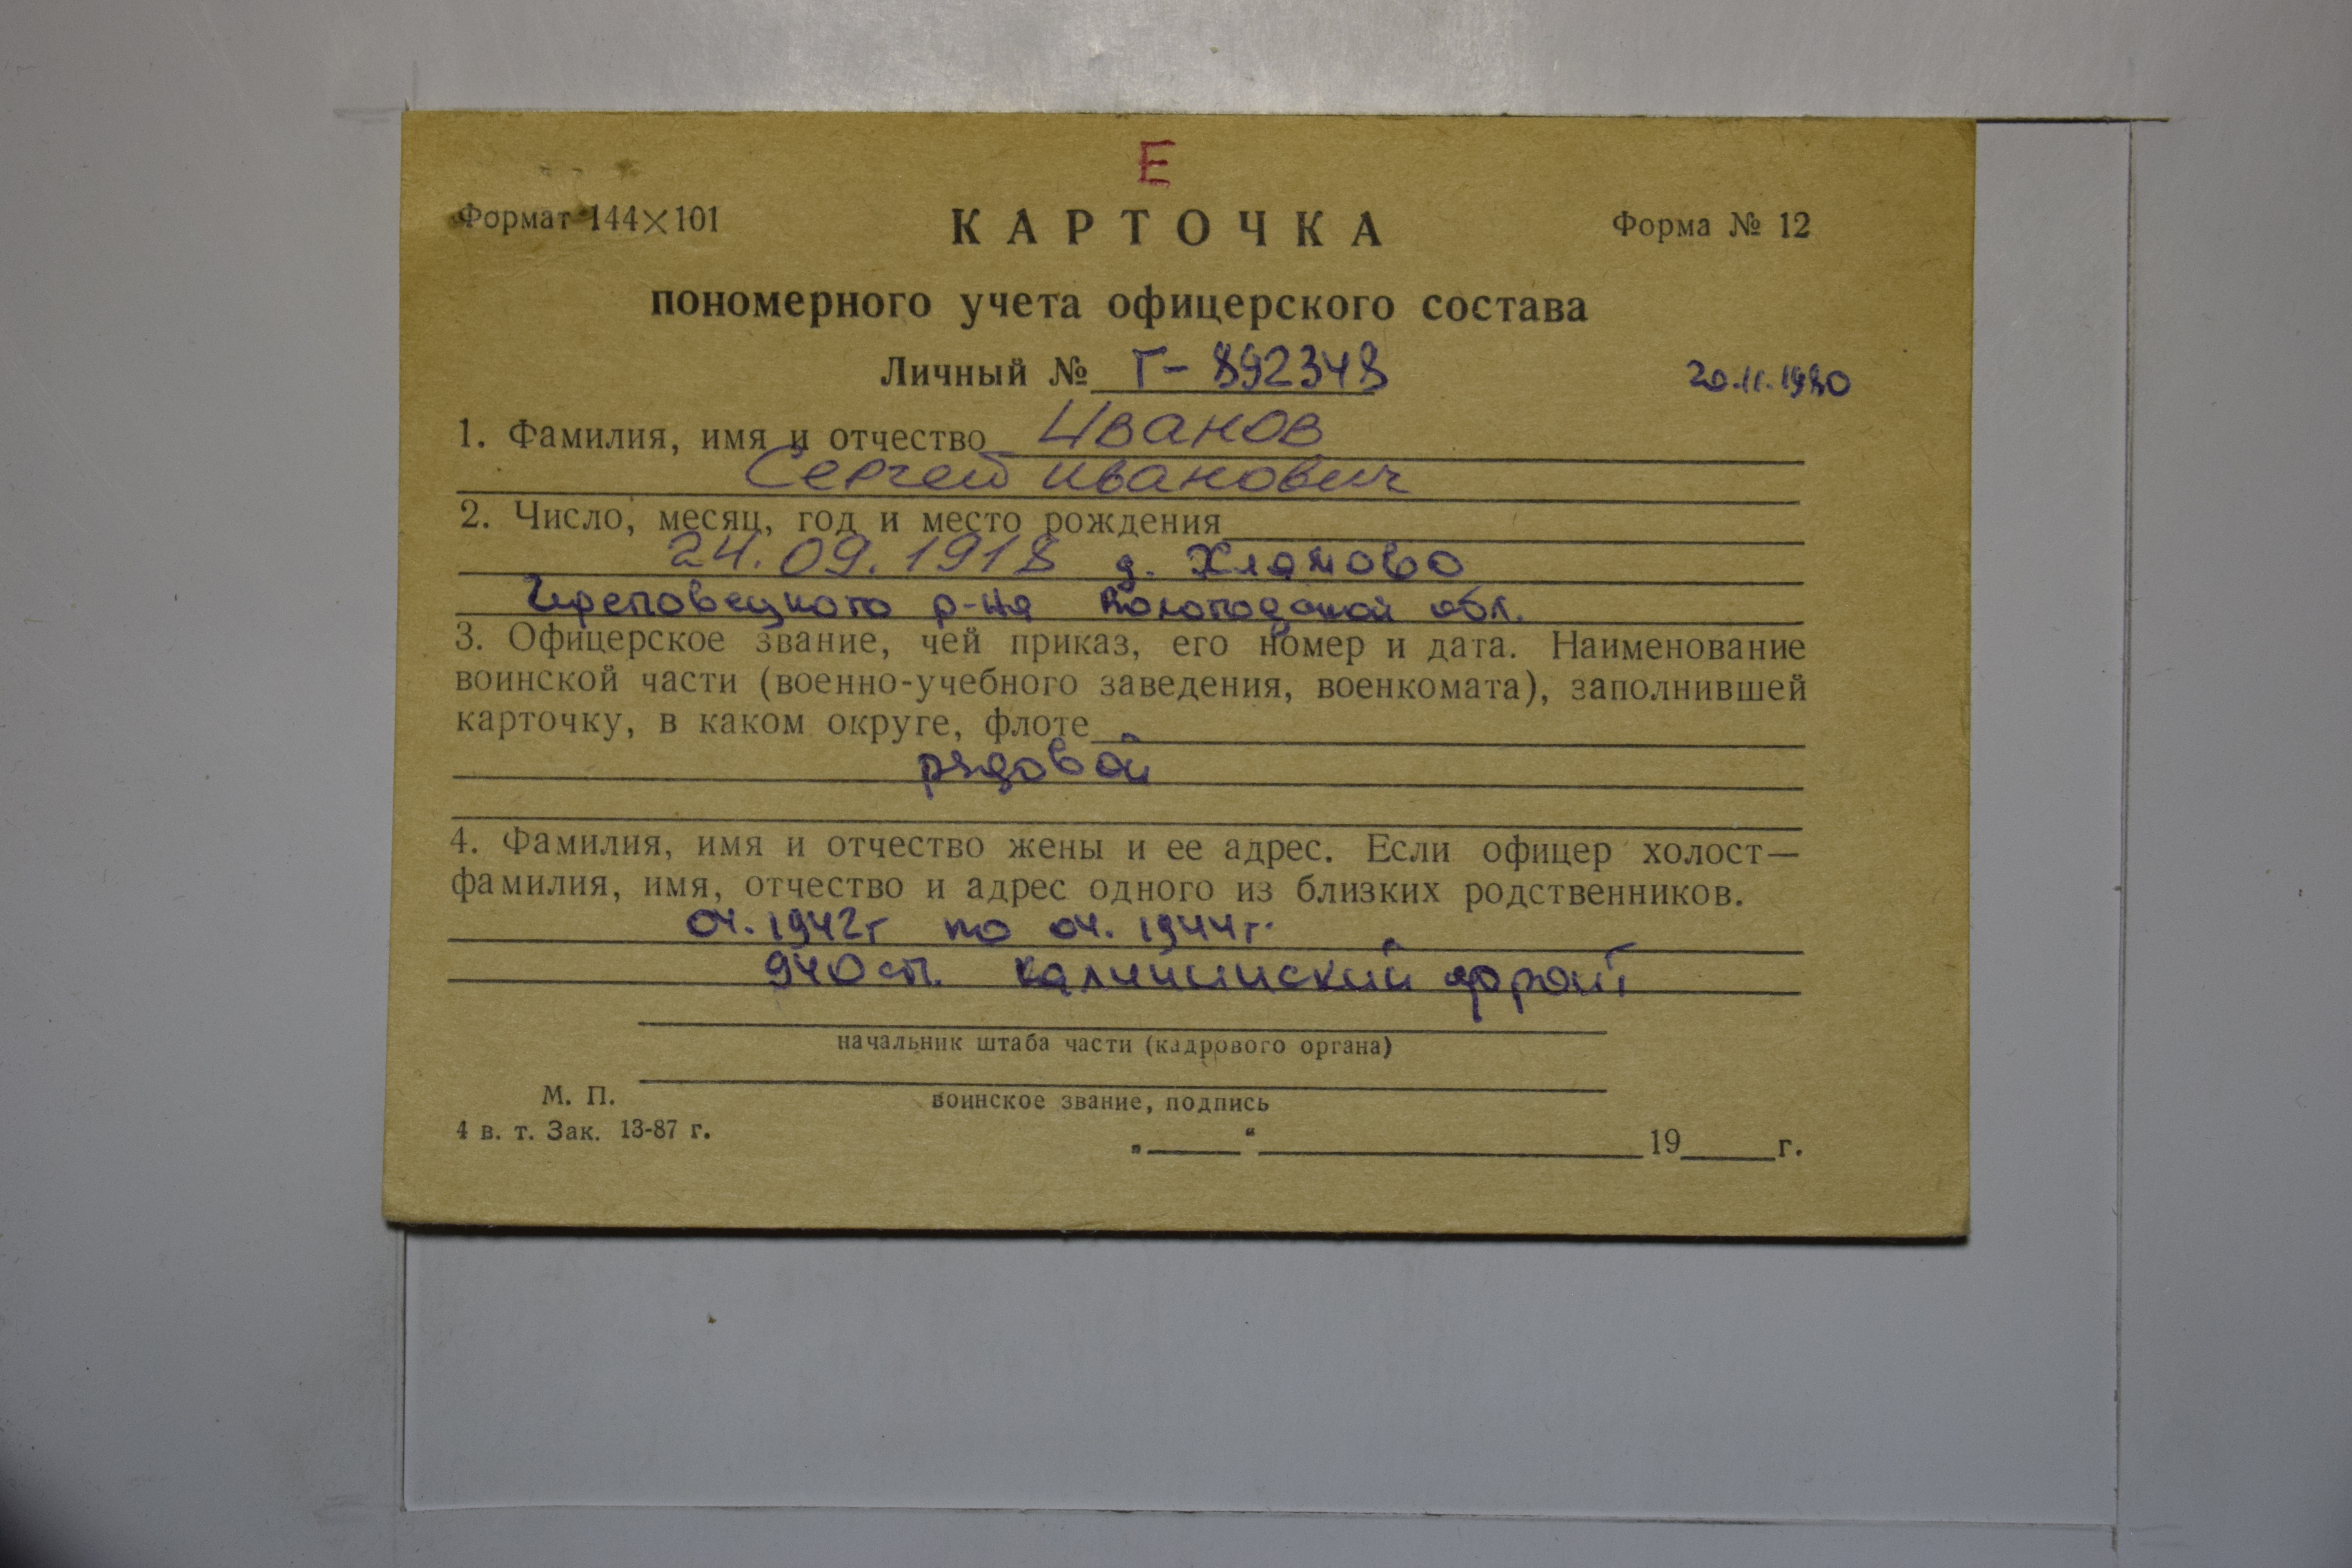 Е
Формат 144×101 КАРТОЧКА Форма № 12
пономерного учета офицерского состава
Личный № Г-892348 20.11.1980
1. Фамилия, имя и отчество Иванов
Сергей Иванович
2. Число, месяц, год и место рождения
24.09.1918 д. Хламово
Череповецкого р-на Вологодской обл.
3. Офицерское звание, чей приказ, его номер и дата. Наименование
воинской части (военно-учебного заведения, военкомата), заполнившей
карточку, в каком округе, флоте
рядовой
4. Фамилия, имя и отчество жены и ее адрес. Если офицер холост—
фамилия, имя, отчество и адрес одного из близких родственников.
04.1942г по 04.1944г.
940 сп. Калининский фронт
начальник штаба части (кадрового органа)
М. П.
воинское звание, подпись
4 в. т. Зак. 13-87 г.
„ “ 19 г.